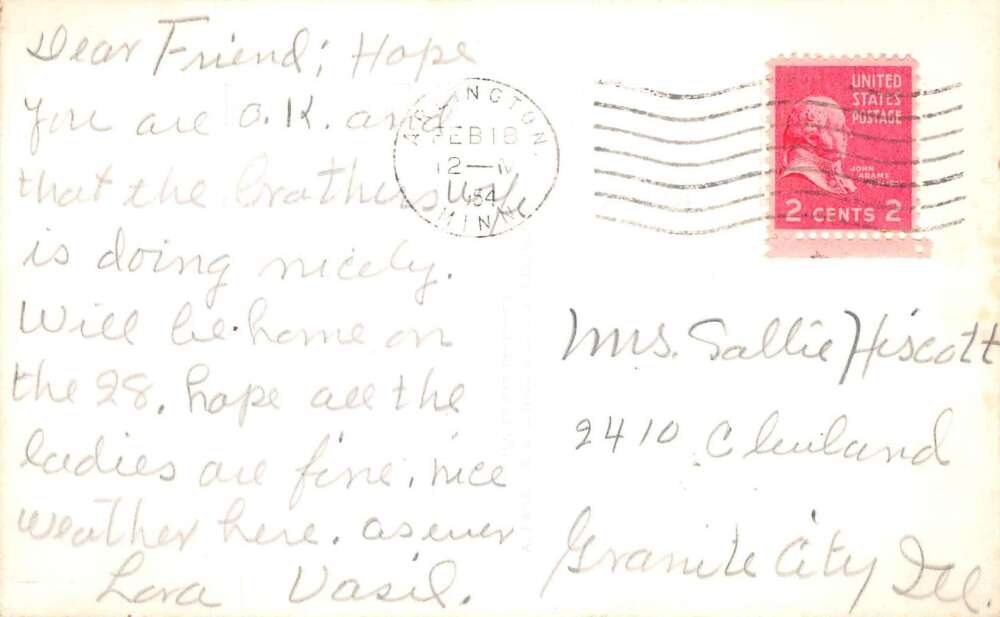 Dear Friend; Hope
you are O.K. and
that the brothers wife
is doing nicely.
Will be home on
the 28. hope all the
ladies are fine. nice
weather here. as ever
Lora Vasil.
ARLINGTON,
FEB 18
12—M
1954
MINN
UNITED
STATES
POSTAGE
JOHN
ADAMS
2 CENTS 2
Mrs. Sallie Hiscott
2410 Cleveland
Granite City Ill.